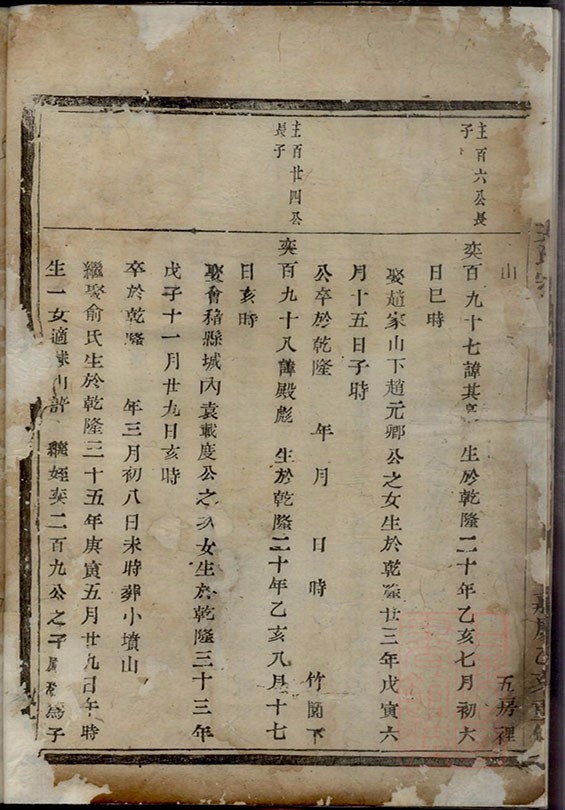 五房裡
山
圭百六公長
子
奕百九十七諱其 生於乾隆二十年乙亥七月初六
日巳時
娶趙家山下趙元卿公之女生於乾隆廿三年戊寅六
月十五日子時
公卒於乾隆 年 月 日 時 竹園下
圭百廿四公
長子
奕百九十八諱殿彪 生於乾隆二十年乙亥八月十七
日亥時
娶會稽縣城內袁載度公之次女生於乾隆三十三年
戊子十一月廿九日亥時
卒於乾隆 年三月初八日未時葬小墳山
繼娶俞氏生於乾隆三十五年庚寅五月廿九日午時
生一女適 山許 繼姪奕二百九公之子 為子